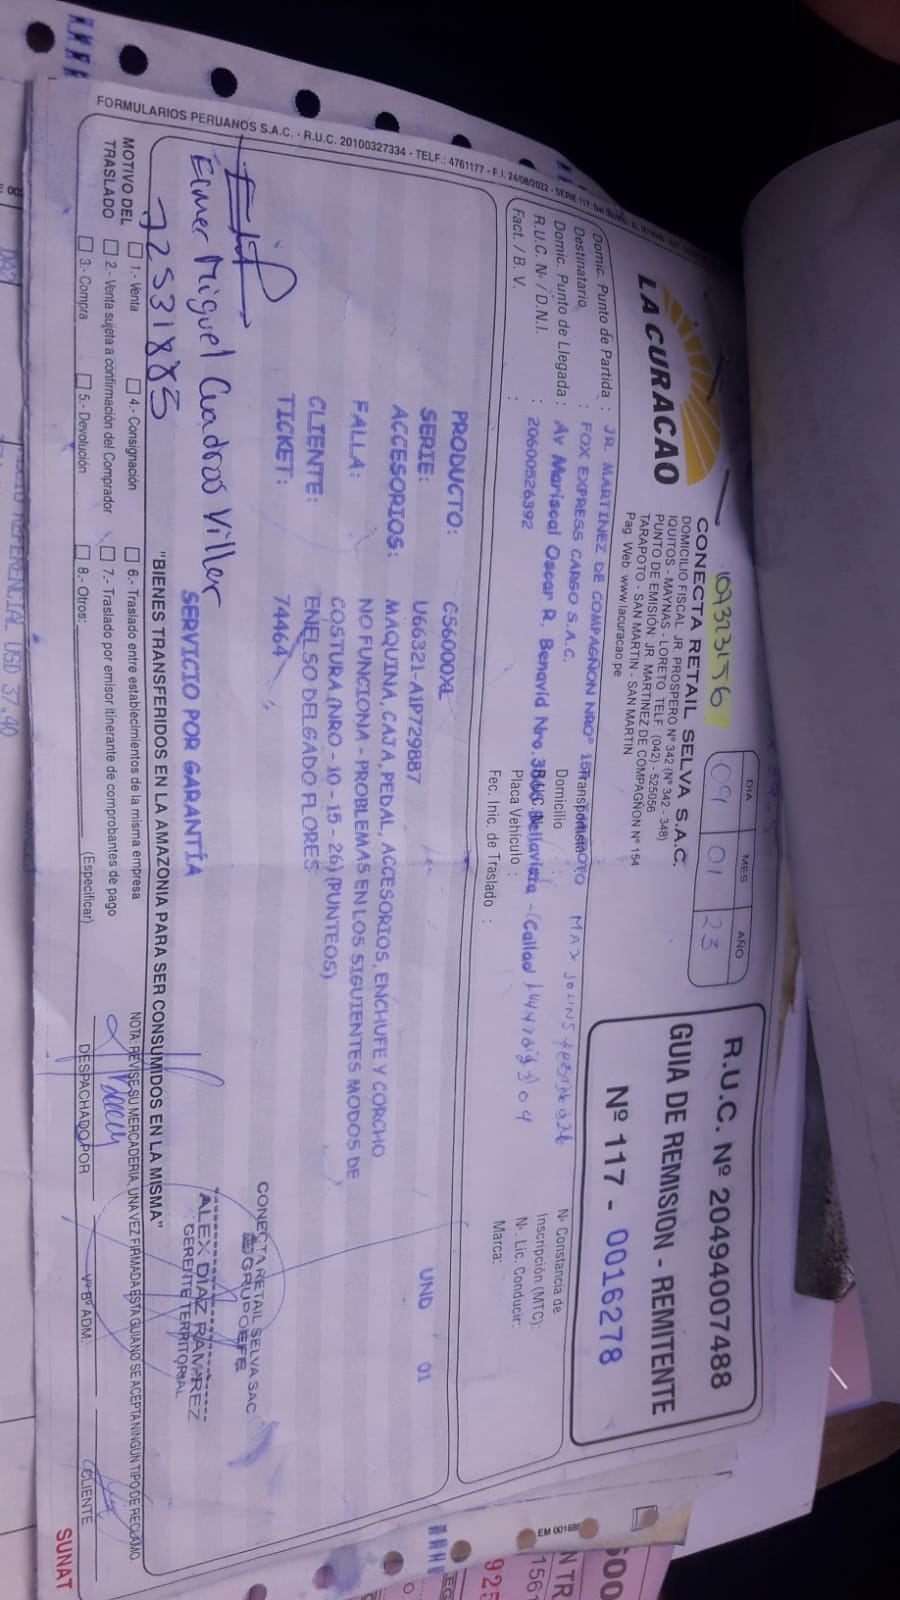 FORMULARIOS PERUANOS S.A.C. - R.U.C. 20100327334 - TELF.: 4761177 - F.I. 24/08/2022 - SERIE 117:
LA CURACAO
109313156
CONECTA RETAIL SELVA S.A.C.
DOMICILIO FISCAL JR. PROSPERO Nº 342 (Nº 342 - 348)
IQUITOS - MAYNAS - LORETO TELF. (042) - 525056
PUNTO DE EMISIÓN: JR. MARTINEZ DE COMPAGNON Nº 154
TARAPOTO - SAN MARTIN - SAN MARTIN
Pag. Web www.lacuracao.pe
DIA MES AÑO
09 01 23
R.U.C. Nº 20494007488
GUIA DE REMISION - REMITENTE
Nº 117 - 0016278
Domic. Punto de Partida : JR. MARTINEZ DE COMPAGNON NRO°
Destinatario : FOX EXPRESS CARGO S.A.C.
Domic. Punto de Llegada : Av Mariscal Oscar R. Benavid Nro.
R.U.C. Nº / D.N.I. : 20600526392
Fact. / B. V. :
Transportista
Domicilio :
R.U.C. Nº
Bellavista -
Placa Vehículo :
Fec. Inic. de Traslado :
Nº Constancia de
Inscripción (MTC):
Nº. Lic. Conducir:
Marca:
PRODUCTO: CS6000XL
SERIE: U66321-A1P729887 UND 01
ACCESORIOS: MAQUINA, CAJA, PEDAL, ACCESORIOS, ENCHUFE Y CORCHO
FALLA: NO FUNCIONA - PROBLEMAS EN LOS SIGUIENTES MODOS DE
COSTURA (NRO - 10 - 15 - 26) (PUNTEOS)
CLIENTE: ENELSO DELGADO FLORES
TICKET: 74464
Elmer Miguel Cuadros Villar
72531885
SERVICIO POR GARANTÍA
CONECTA RETAIL SELVA SAC
GRUPO EFE
ALEX DIAZ RAMIREZ
GERENTE TERRITORIAL
"BIENES TRANSFERIDOS EN LA AMAZONIA PARA SER CONSUMIDOS EN LA MISMA"
MOTIVO DEL TRASLADO
1.- Venta
2.- Venta sujeta a confirmación del Comprador
3.- Compra
4.- Consignación
5.- Devolución
6.- Traslado entre establecimientos de la misma empresa
7.- Traslado por emisor itinerante de comprobantes de pago
8.- Otros: (Especificar)
NOTA: REVISE SU MERCADERIA, UNA VEZ FIRMADA ESTA GUIA NO SE ACEPTA NINGUN TIPO DE RECLAMO.
DESPACHADO POR
VºBº ADM.
CLIENTE
SUNAT
REFERENCIAL USD 37.40